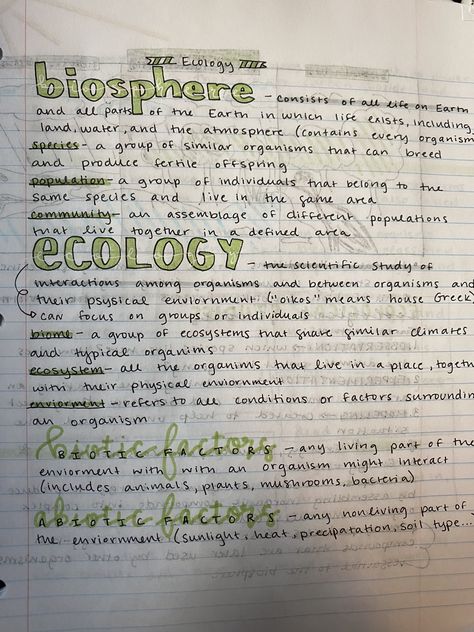 Ecology
biosphere - consists of all life on Earth
and all parts of the Earth in which life exists, including
land, water, and the atmosphere (contains every organism
species - a group of similar organisms that can breed
and produce fertile offspring
population - a group of individuals that belong to the
same species and live in the same area
community - an assemblage of different populations
that live together in a defined area
ECOLOGY - the scientific study of
interactions among organisms and between organisms and
their psysical enviornment ("oikos" means house Greek
can focus on groups or individuals
biome - a group of ecosystems that share similar climates
and typical organims
ecosystem - all the organims that live in a place, togeth
with their physical enviornment
enviorment - refers to all conditions or factors surroundin
an organism
biotic factors BIOTIC FACTORS - any living part of the
enviorment with with an organism might interact
(includes animals, plants, mushrooms, bacteria)
abiotic factors ABIOTIC FACTORS - any nonliving part of
the enviornment (sunlight, heat, precipatation, soil type...